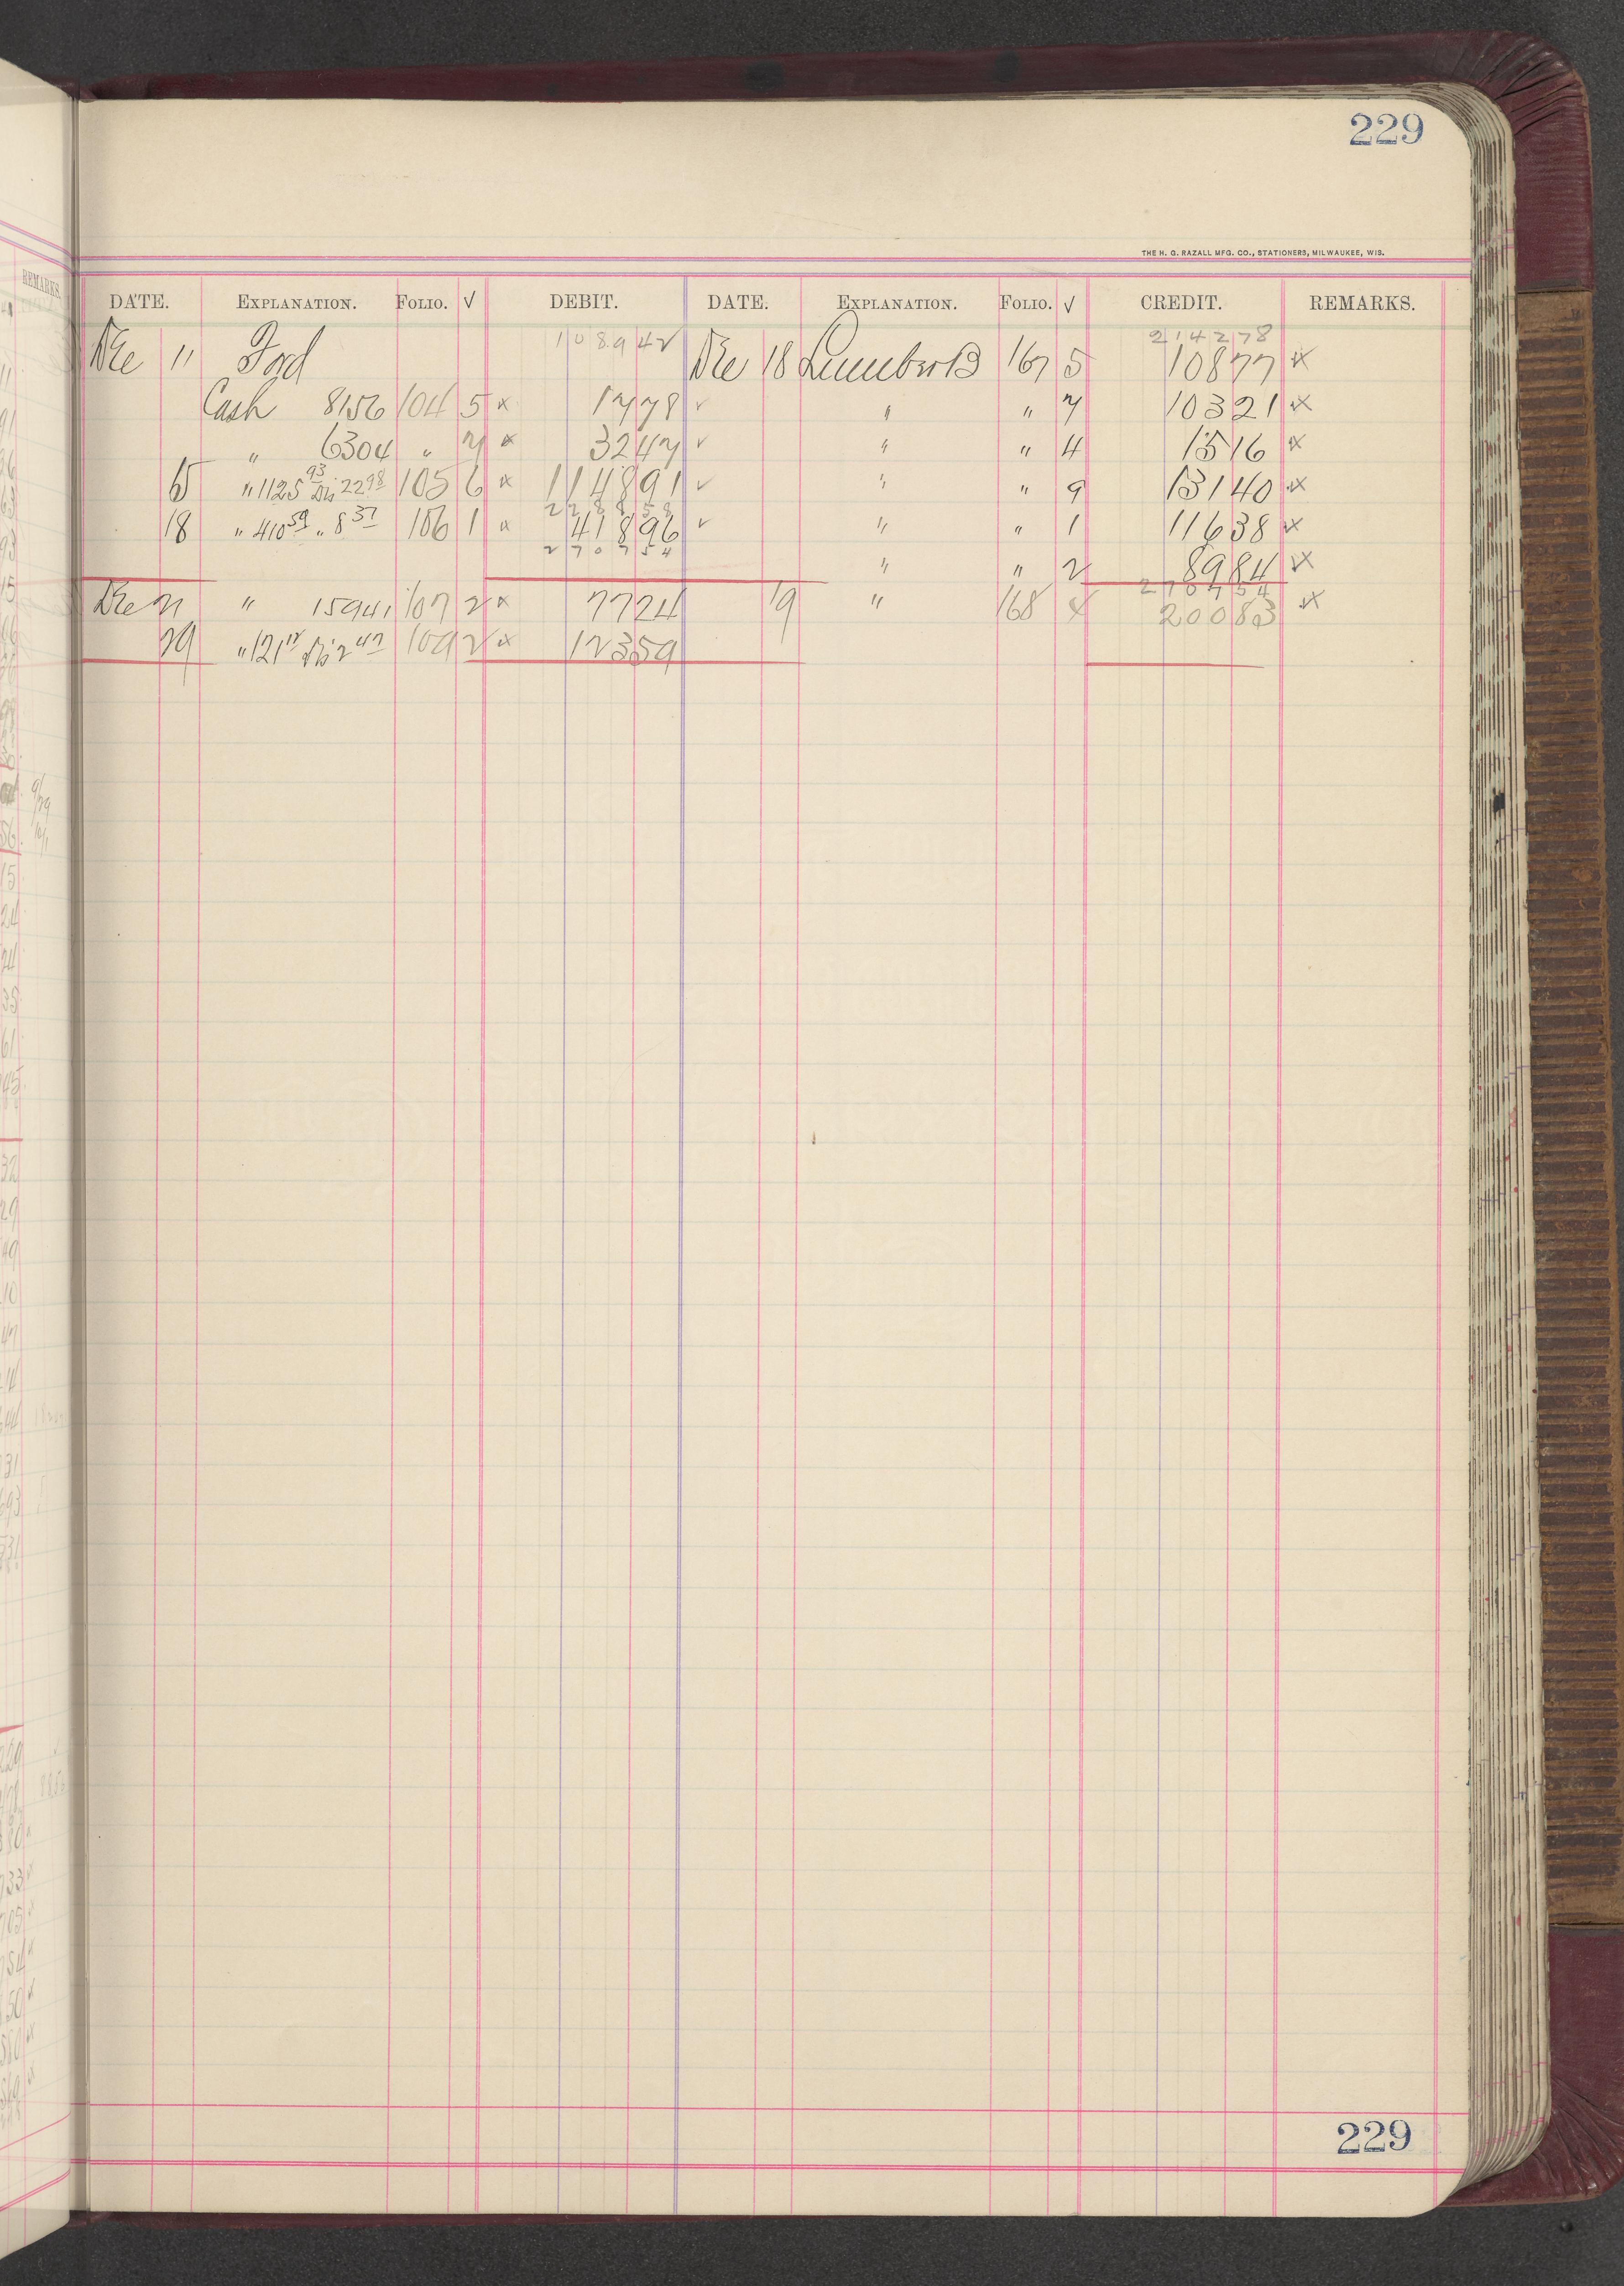 229
THE H. G. RAZALL MFG. CO., STATIONERS, MILWAUKEE, WIS.
DATE. EXPLANATION. FOLIO. √ DEBIT. DATE. EXPLANATION. FOLIO. √ CREDIT. REMARKS.
108942 214278
Dec 11 Ford Dec 18 Lumber B 167 5 10877 x
Cash 8156 104 5 x 1778 √ " " 7 10321 x
" 6304 " 7 x 3247 √ " " 4 1516 x
15 " 1125 93 Dis 22 98 105 6 x 114891 √ " " 9 13140 x
228858
18 " 410 59 " 8 37 106 1 x 41896 √ " " 1 11638 x
270754
" " 2 8984 x
270754
Dec 21 " 15941 107 2 x 7724 19 " 168 4 20083 x
29 " 121 12 Dis 2 47 109 2 x 12359
229
REMARKS.